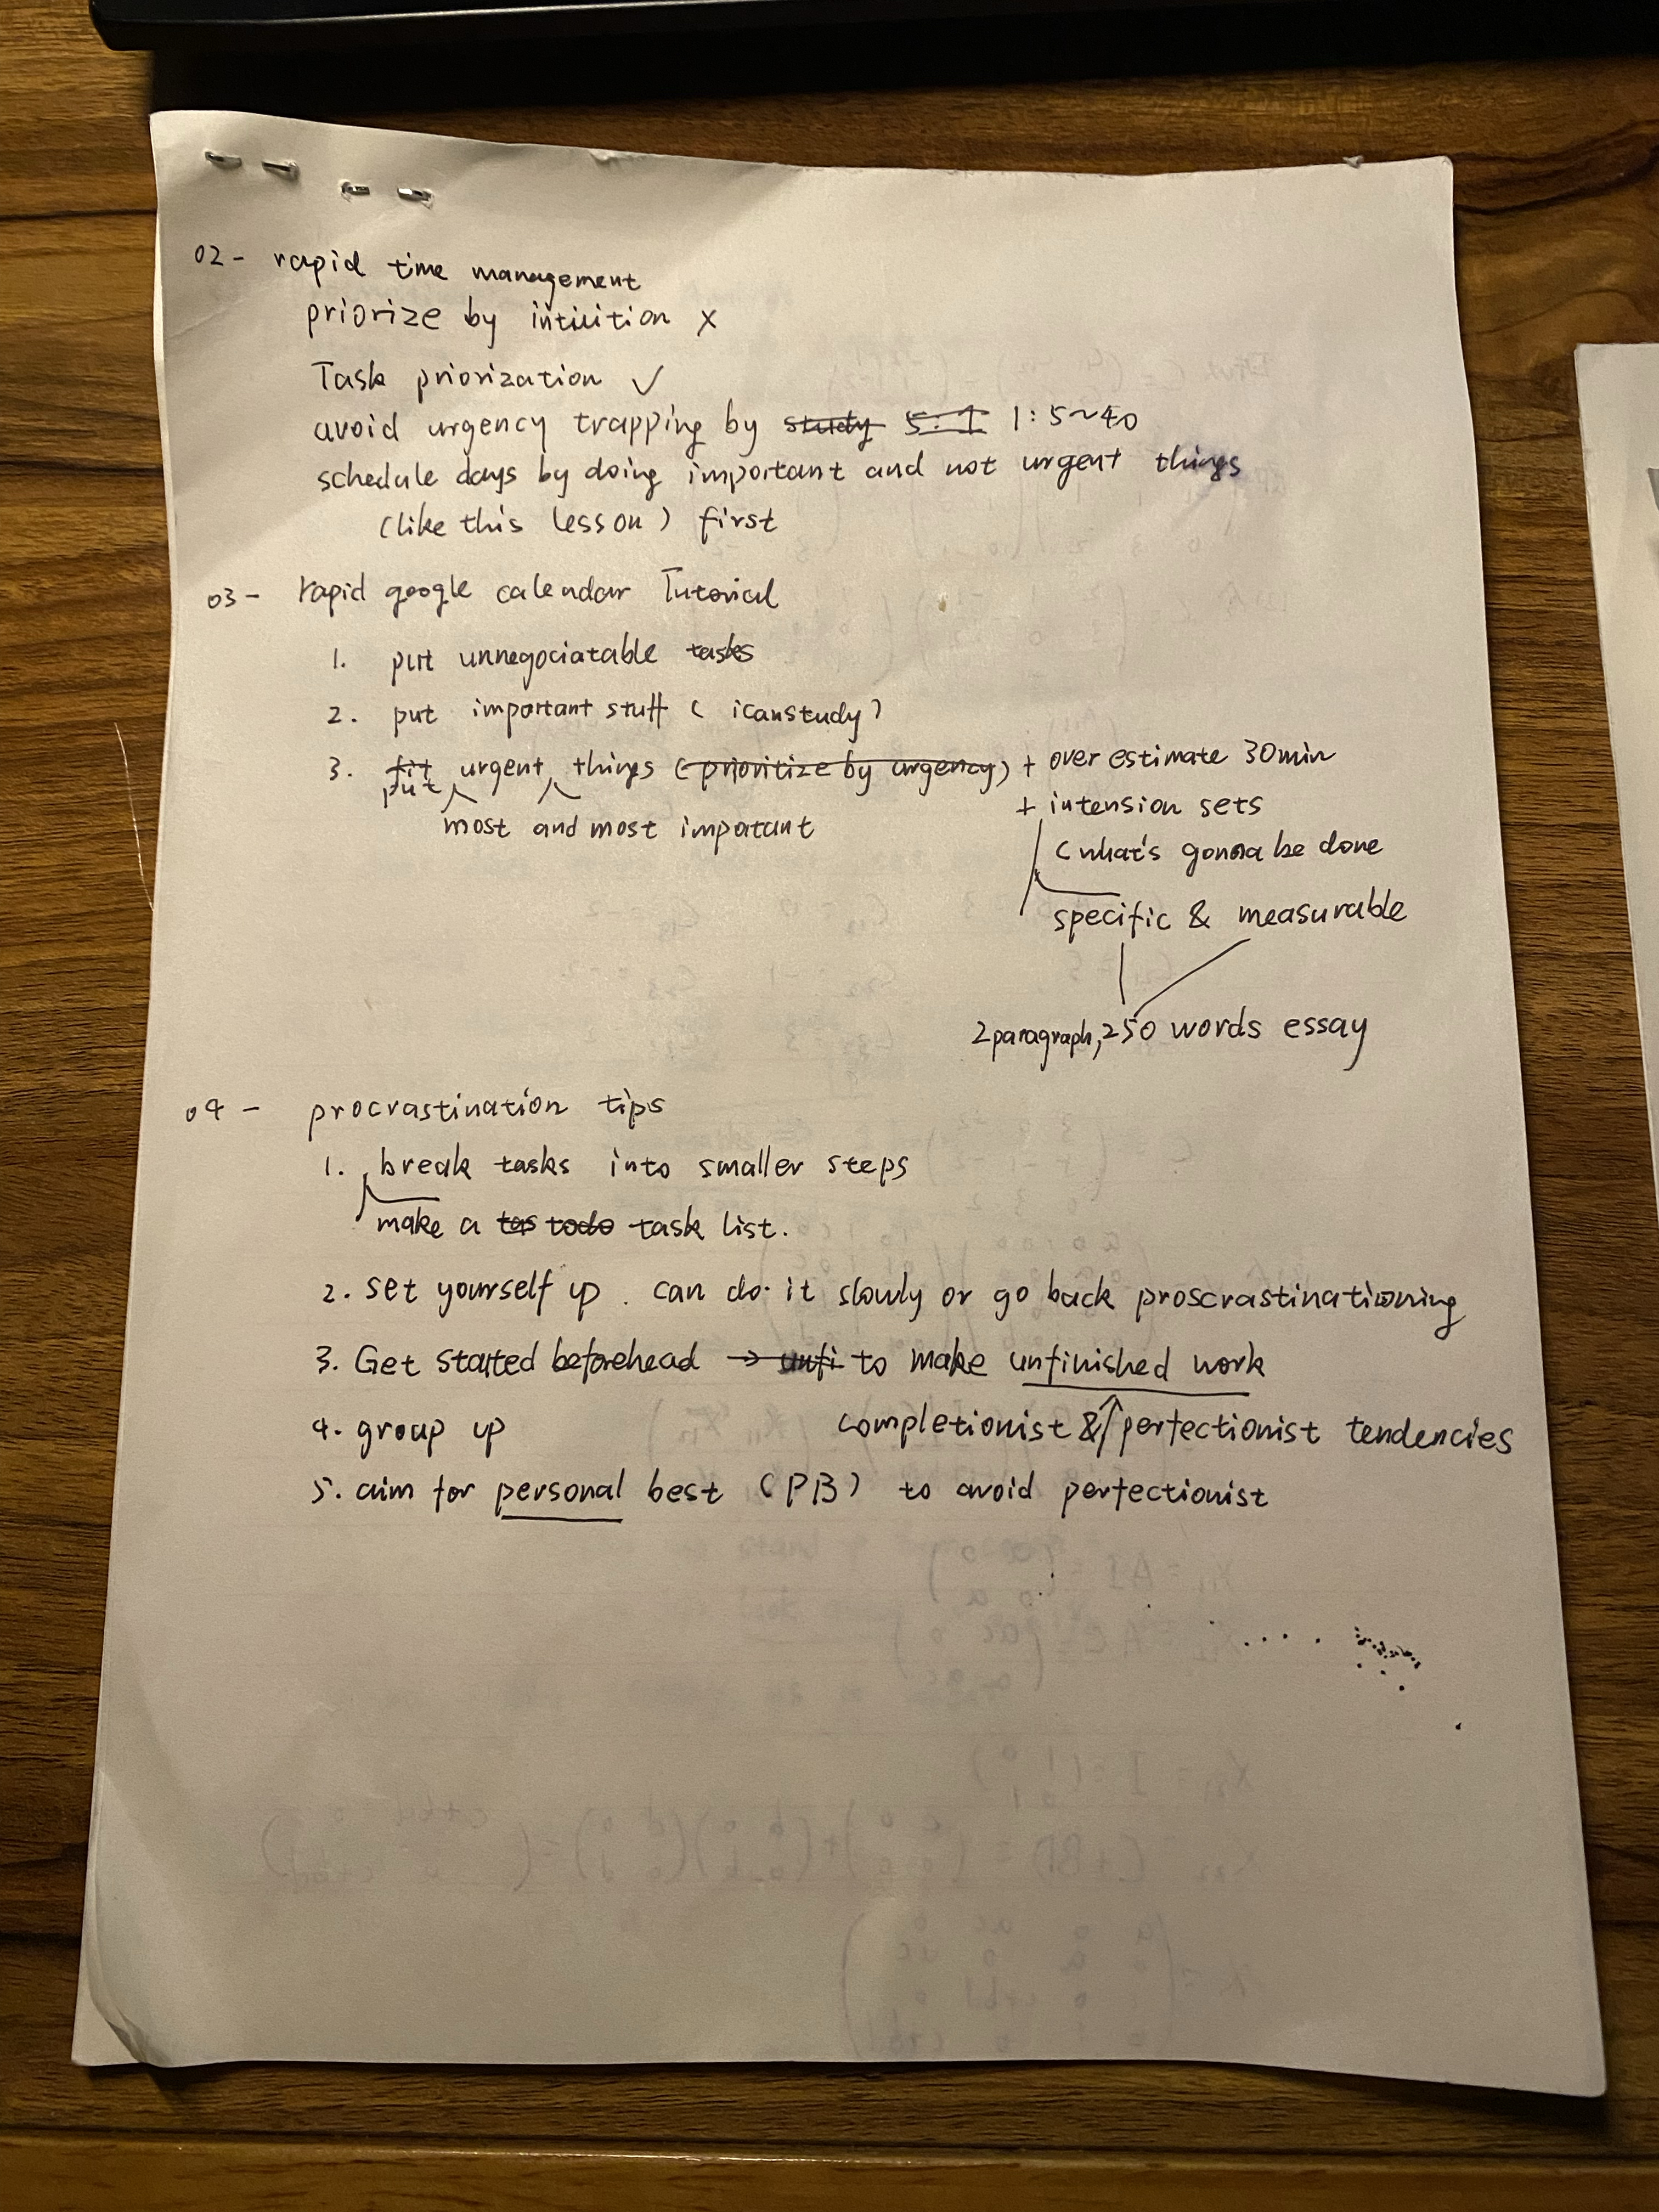 02- rapid time management
priorize by intuition ×
Task priorization ✓
avoid urgency trapping by study 5:1 1:5~40
schedule days by doing important and not urgent things
(like this lesson) first
03- rapid google calendar Tutorial
1. put unnegociatable tasks
2. put important stuff (icanstudy)
3. fit put urgent things (prioritize by urgency) + over estimate 30min
most and most impotant
+ intension sets
(what's gonna be done
specific & measurable
2 paragraph, 250 words essay
04- procrastination tips
1. break tasks into smaller steps
make a tas todo task list.
2. set yourself up. can do it slowly or go back proscrastinationing
3. Get started beforehead → unfi to make unfinished work
completionist & perfectionist tendencies
4. group up
5. aim for personal best (PB) to avoid perfectionist